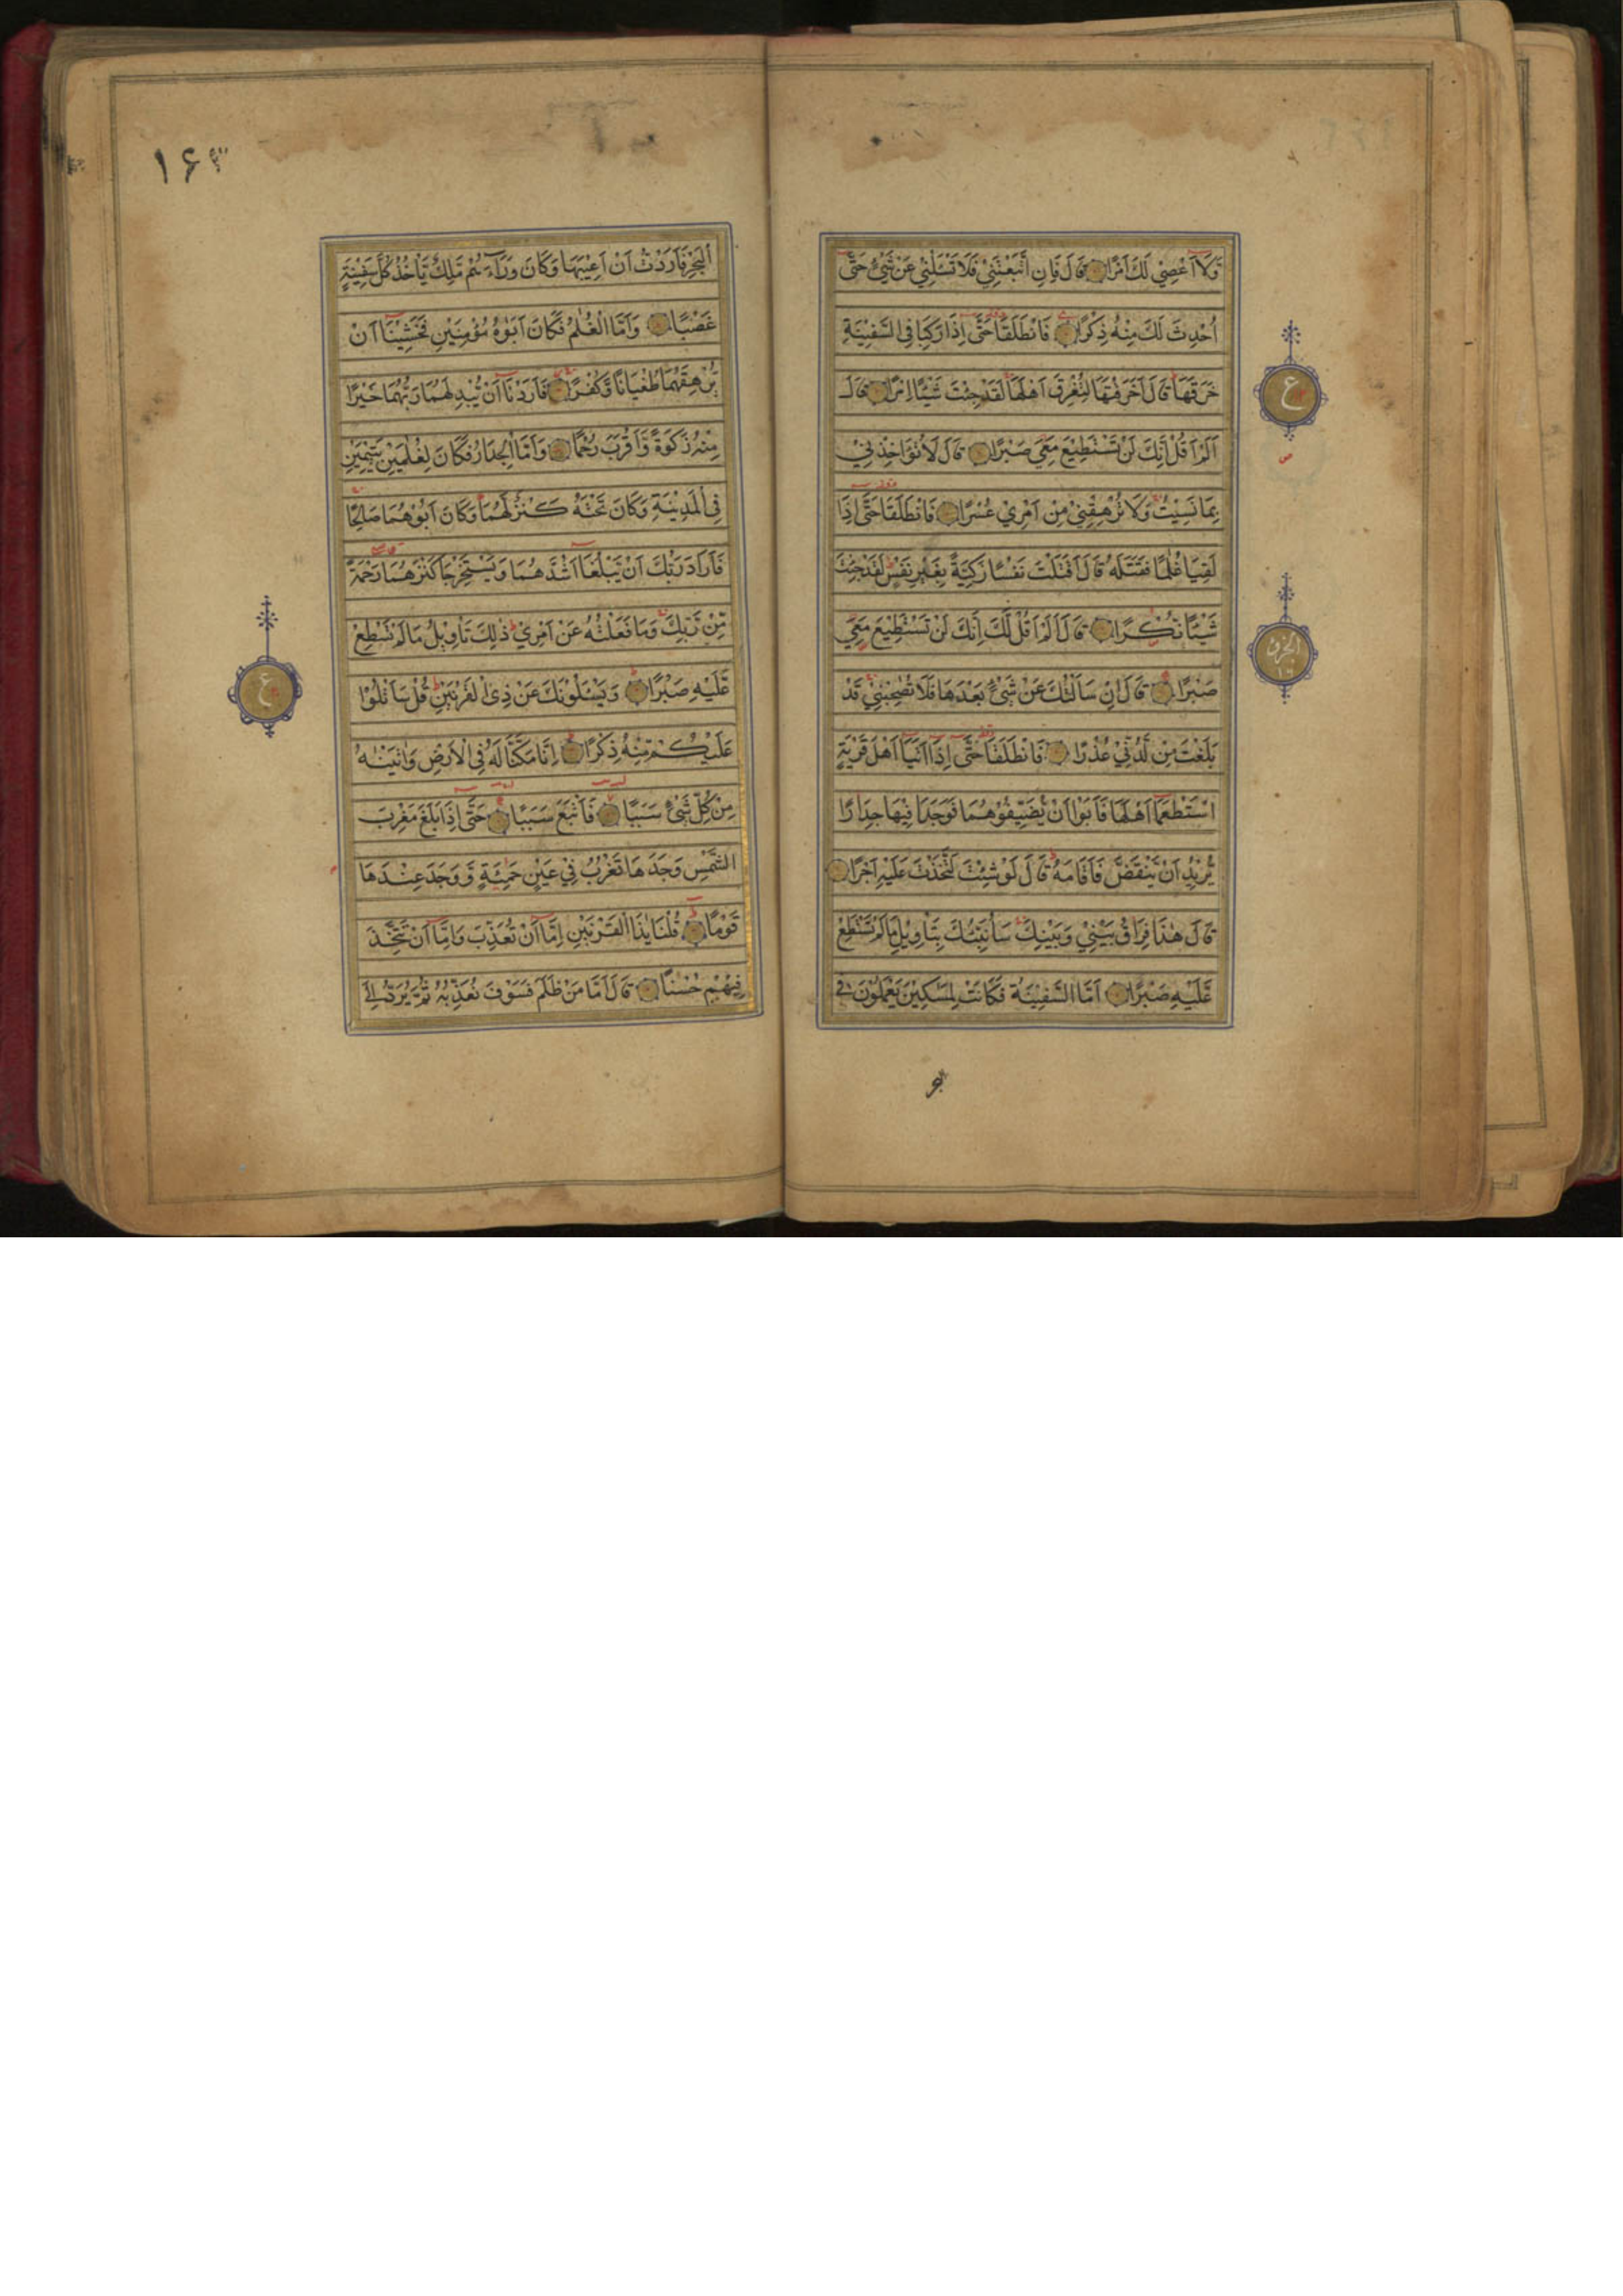 وَّلَآ اَعْصِيْ لَكَ اَمْرًا قَالَ فَاِنِ اتَّبَعْتَنِيْ فَلَا تَسْـَٔلْنِيْ عَنْ شَيْءٍ حَتّٰى
اُحْدِثَ لَكَ مِنْهُ ذِكْرًا فَانْطَلَقَا حَتّٰى اِذَا رَكِبَا فِي السَّفِيْنَةِ
خَرَقَهَا قَالَ اَخَرَقْتَهَا لِتُغْرِقَ اَهْلَهَا لَقَدْ جِئْتَ شَيْئًا اِمْرًا قَالَ
اَلَمْ اَقُلْ اِنَّكَ لَنْ تَسْتَطِيْعَ مَعِيَ صَبْرًا قَالَ لَا تُؤَاخِذْنِيْ
بِمَا نَسِيْتُ وَلَا تُرْهِقْنِيْ مِنْ اَمْرِيْ عُسْرًا فَانْطَلَقَا حَتّٰى اِذَا
لَقِيَا غُلٰمًا فَقَتَلَهُ قَالَ اَقَتَلْتَ نَفْسًا زَكِيَّةً بِغَيْرِ نَفْسٍ لَقَدْ جِئْتَ
شَيْئًا نُكْرًا قَالَ اَلَمْ اَقُلْ لَّكَ اِنَّكَ لَنْ تَسْتَطِيْعَ مَعِيَ
صَبْرًا قَالَ اِنْ سَاَلْتُكَ عَنْ شَيْءٍ بَعْدَهَا فَلَا تُصٰحِبْنِيْ قَدْ
بَلَغْتَ مِنْ لَّدُنِّيْ عُذْرًا فَانْطَلَقَا حَتّٰى اِذَآ اَتَيَآ اَهْلَ قَرْيَةٍ
اسْتَطْعَمَآ اَهْلَهَا فَاَبَوْا اَنْ يُّضَيِّفُوْهُمَا فَوَجَدَا فِيْهَا جِدَارًا
يُّرِيْدُ اَنْ يَّنْقَضَّ فَاَقَامَهُ قَالَ لَوْ شِئْتَ لَتَّخَذْتَ عَلَيْهِ اَجْرًا
قَالَ هٰذَا فِرَاقُ بَيْنِيْ وَبَيْنِكَ سَاُنَبِّئُكَ بِتَاْوِيْلِ مَا لَمْ تَسْتَطِعْ
عَّلَيْهِ صَبْرًا اَمَّا السَّفِيْنَةُ فَكَانَتْ لِمَسٰكِيْنَ يَعْمَلُوْنَ فِي
ع
الجزء
١٦
١٦٣
الْبَحْرِ فَاَرَدْتُ اَنْ اَعِيْبَهَا وَكَانَ وَرَآءَهُمْ مَّلِكٌ يَّاْخُذُ كُلَّ سَفِيْنَةٍ
غَصْبًا وَاَمَّا الْغُلٰمُ فَكَانَ اَبَوٰهُ مُؤْمِنَيْنِ فَخَشِيْنَآ اَنْ
يُّرْهِقَهُمَا طُغْيَانًا وَّكُفْرًا فَاَرَدْنَآ اَنْ يُّبْدِلَهُمَا رَبُّهُمَا خَيْرًا
مِّنْهُ زَكٰوةً وَّاَقْرَبَ رُحْمًا وَاَمَّا الْجِدَارُ فَكَانَ لِغُلٰمَيْنِ يَتِيْمَيْنِ
فِي الْمَدِيْنَةِ وَكَانَ تَحْتَهُ كَنْزٌ لَّهُمَا وَكَانَ اَبُوْهُمَا صَالِحًا
فَاَرَادَ رَبُّكَ اَنْ يَّبْلُغَآ اَشُدَّهُمَا وَيَسْتَخْرِجَا كَنْزَهُمَا رَحْمَةً
مِّنْ رَّبِّكَ وَمَا فَعَلْتُهُ عَنْ اَمْرِيْ ذٰلِكَ تَاْوِيْلُ مَا لَمْ تَسْطِعْ
عَّلَيْهِ صَبْرًا وَيَسْـَٔلُوْنَكَ عَنْ ذِي الْقَرْنَيْنِ قُلْ سَاَتْلُوْا
عَلَيْكُمْ مِّنْهُ ذِكْرًا اِنَّا مَكَّنَّا لَهُ فِي الْاَرْضِ وَاٰتَيْنٰهُ
مِنْ كُلِّ شَيْءٍ سَبَبًا فَاَتْبَعَ سَبَبًا حَتّٰى اِذَا بَلَغَ مَغْرِبَ
الشَّمْسِ وَجَدَهَا تَغْرُبُ فِيْ عَيْنٍ حَمِئَةٍ وَّوَجَدَ عِنْدَهَا
قَوْمًا قُلْنَا يٰذَا الْقَرْنَيْنِ اِمَّآ اَنْ تُعَذِّبَ وَاِمَّآ اَنْ تَتَّخِذَ
فِيْهِمْ حُسْنًا قَالَ اَمَّا مَنْ ظَلَمَ فَسَوْفَ نُعَذِّبُهُ ثُمَّ يُرَدُّ اِلٰى
ع